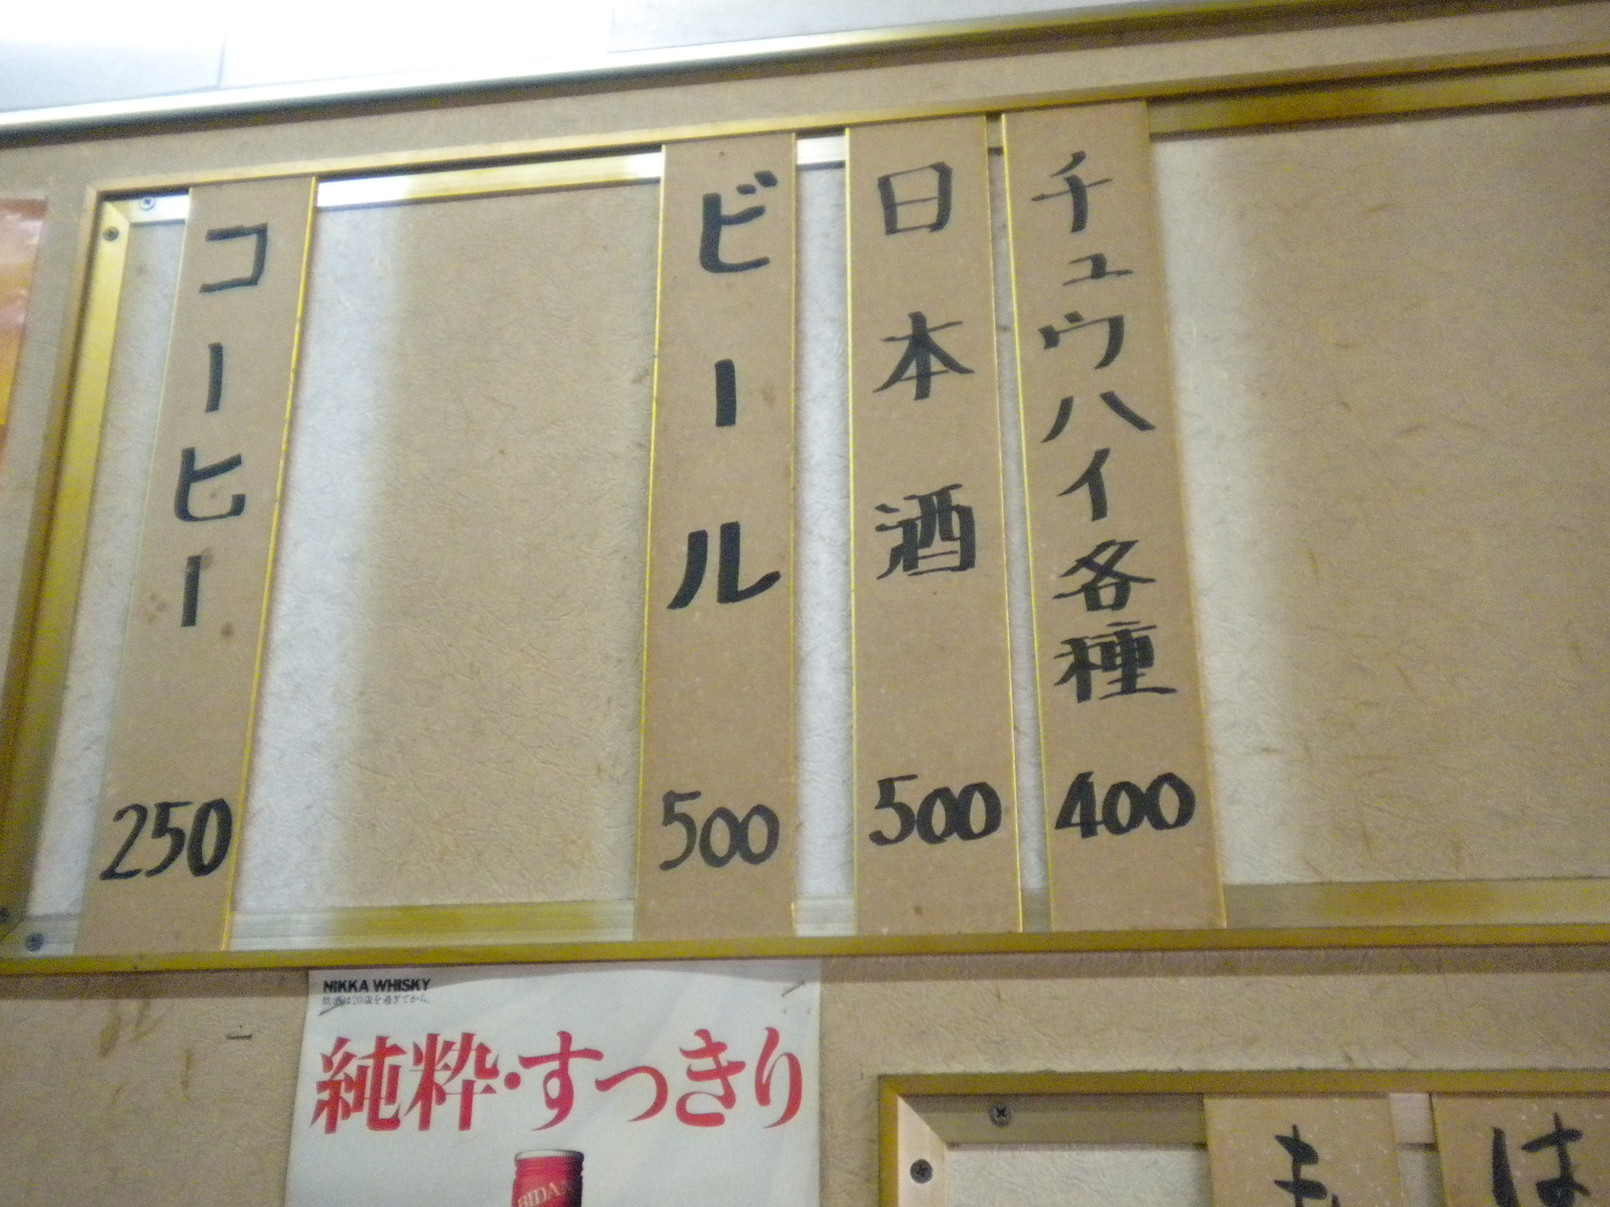 チュウハイ各種 400
日本酒 500
ビール 500
コーヒー 250
NIKKA WHISKY
飲酒は20歳を過ぎてから。
純粋・すっきり
は
も